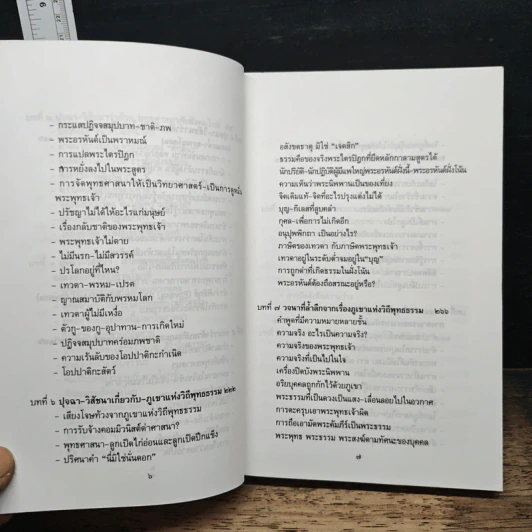 - กระแสปฏิจจสมุปบาท-ชาติ-ภพ
- พระอรหันต์เป็นพราหมณ์
- การแปลพระไตรปิฎก
- สารหยั่งลงไปในพระสูตร
- การจัดพุทธศาสนาให้เป็นวิทยาศาสตร์-เป็นการดูหมิ่น
พระพุทธเจ้า
- ปรัชญาไม่ได้ให้อะไรแก่มนุษย์
- เรื่องกลับชาติของพระพุทธเจ้า
- พระพุทธเจ้าไม่ตาย
- ไม่มีนรก-ไม่มีสวรรค์
- ปรโลกอยู่ที่ไหน?
- เทวดา-พรหม-เปรต
- ญาณสมาบัติกับพรหมโลก
- เทวดาผู้ไม่มีเหงื่อ
- ตัวกู-ของกู-อุปาทาน-การเกิดใหม่
- ปฏิจจสมุปบาทคร่อมภพชาติ
- ความเร้นลับของโอปปาติกะกำเนิด
- โอปปาติกะสัตว์
บทที่ ๖ ปุจฉา-วิสัชนาเกี่ยวกับ-ภูเขาแห่งวิถีพุทธธรรม ๒๒๒
- เสียงโจษท้วงจากภูเขาแห่งวิถีพุทธธรรม
- การรับจ้างคอมมิวนิสต์ด่าศาสนา?
- พุทธศาสนา-ลูกเป็ดไก่อ่อนและลูกเป็ดปีกแข็ง
- ปริศนาคำ "นี่มิใช่นั่นดอก"
๖
อสังขตธาตุ มิใช่ "เจตสิก"
ธรรมคือของจริงพระไตรปิฎกที่ยึดหลักกาลามสูตรได้
นักปริยัติ-นักปฏิบัติผู้มีแพใหญ่พระอรหันต์ฝั่งนี้-พระอรหันต์ฝั่งโน้น
ความเห็นว่าพระนิพพานเป็นของเที่ยง
จิตเดิมแท้-จิตที่อะไรปรุงแต่งไม่ได้
บุญ-กิเลสที่ลูบคลำ
กุศล-เพื่อการไม่เกิดอีก
อนุปุพพิกถา เป็นอย่างไร?
ภาษิตของเทวดา กับภาษิตพระพุทธเจ้า
เทวดาอยู่ในระดับต่ำจมอยู่ใน"บุญ"
การถูกด่าที่เกิดธรรมในฝั่งโน้น
พระอรหันต์ต้องถือสรณะอยู่หรือ?
บทที่ ๗ วจนาที่ล้ำลึกจากเรื่องภูเขาแห่งวิถีพุทธธรรม ๒๖๖
คำพูดที่มีความหมายหลายชั้น
ความจริง อะไรเป็นความจริง?
ความจริงของพระพุทธเจ้า
ความจริงที่เป็นไปในใจ
เครื่องปิดบังพระนิพพาน
อริยบุคคลถูกกักไว้ด้วยภูเขา
พระธรรมที่เป็นดวงเป็นแสง-เลื่อนลอยไปในอวกาศ
การตะครุบเอาพระพุทธเจ้าผิด
การถือเอามัดพระคัมภีร์เป็นพระธรรม
พระพุทธ พระธรรม พระสงฆ์ตามทัศนะของบุคคล
๗